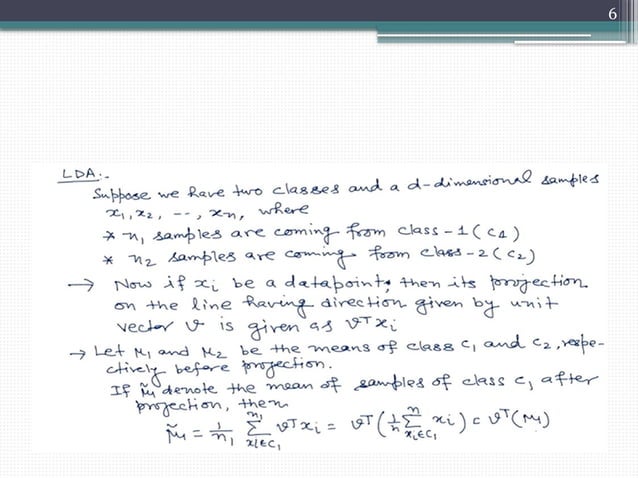 6
LDA:-
Suppose we have two classes and a d-dimensional samples
x₁, x₂, --, xₙ, where
* n₁ samples are coming from class-1 (C₁)
* n₂ samples are coming from class-2 (C₂)
→ Now if xᵢ be a datapoint, then its projection
on the line having direction given by unit
vector v is given as vᵀxᵢ
→ Let μ₁ and μ₂ be the means of class C₁ and C₂, respe-
ctively before projection.
If μ̃₁ denote the mean of samples of class C₁ after
projection, then
μ̃₁ = 1/n₁ ∑_{xᵢ∈C₁}^{n₁} vᵀxᵢ = vᵀ(1/n ∑_{xᵢ∈C₁}^{n} xᵢ) = vᵀ(μ₁)